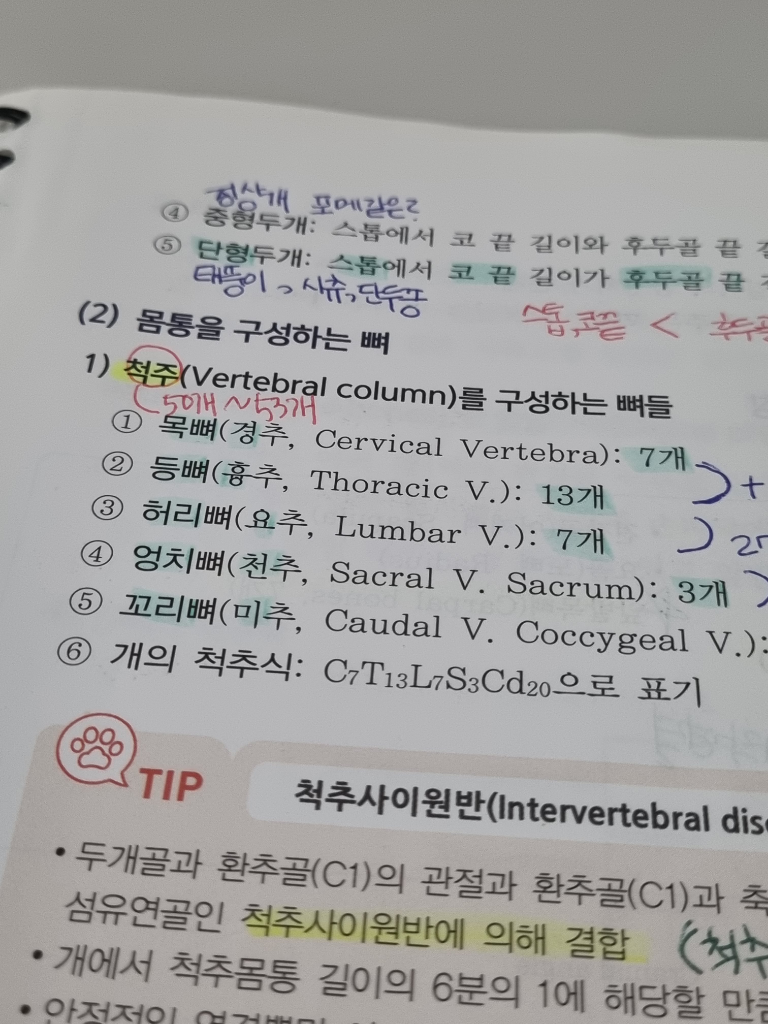 힝상개 포메같은?
④ 중형두개: 스톱에서 코 끝 길이와 후두골 끝
⑤ 단형두개: 스톱에서 코 끝 길이가 후두골 끝
스톱,코끝 < 후두골
(2) 몸통을 구성하는 뼈
1) 척주(Vertebral column)를 구성하는 뼈들
50개~53개
① 목뼈(경추, Cervical Vertebra): 7개
② 등뼈(흉추, Thoracic V.): 13개 +
③ 허리뼈(요추, Lumbar V.): 7개
④ 엉치뼈(천추, Sacral V. Sacrum): 3개
⑤ 꼬리뼈(미추, Caudal V. Coccygeal V.):
⑥ 개의 척추식: C7T13L7S3Cd20으로 표기
TIP 척추사이원반(Intervertebral disc
• 두개골과 환추골(C1)의 관절과 환추골(C1)과 축
섬유연골인 척추사이원반에 의해 결합 (척추
• 개에서 척추몸통 길이의 6분의 1에 해당할 만큼